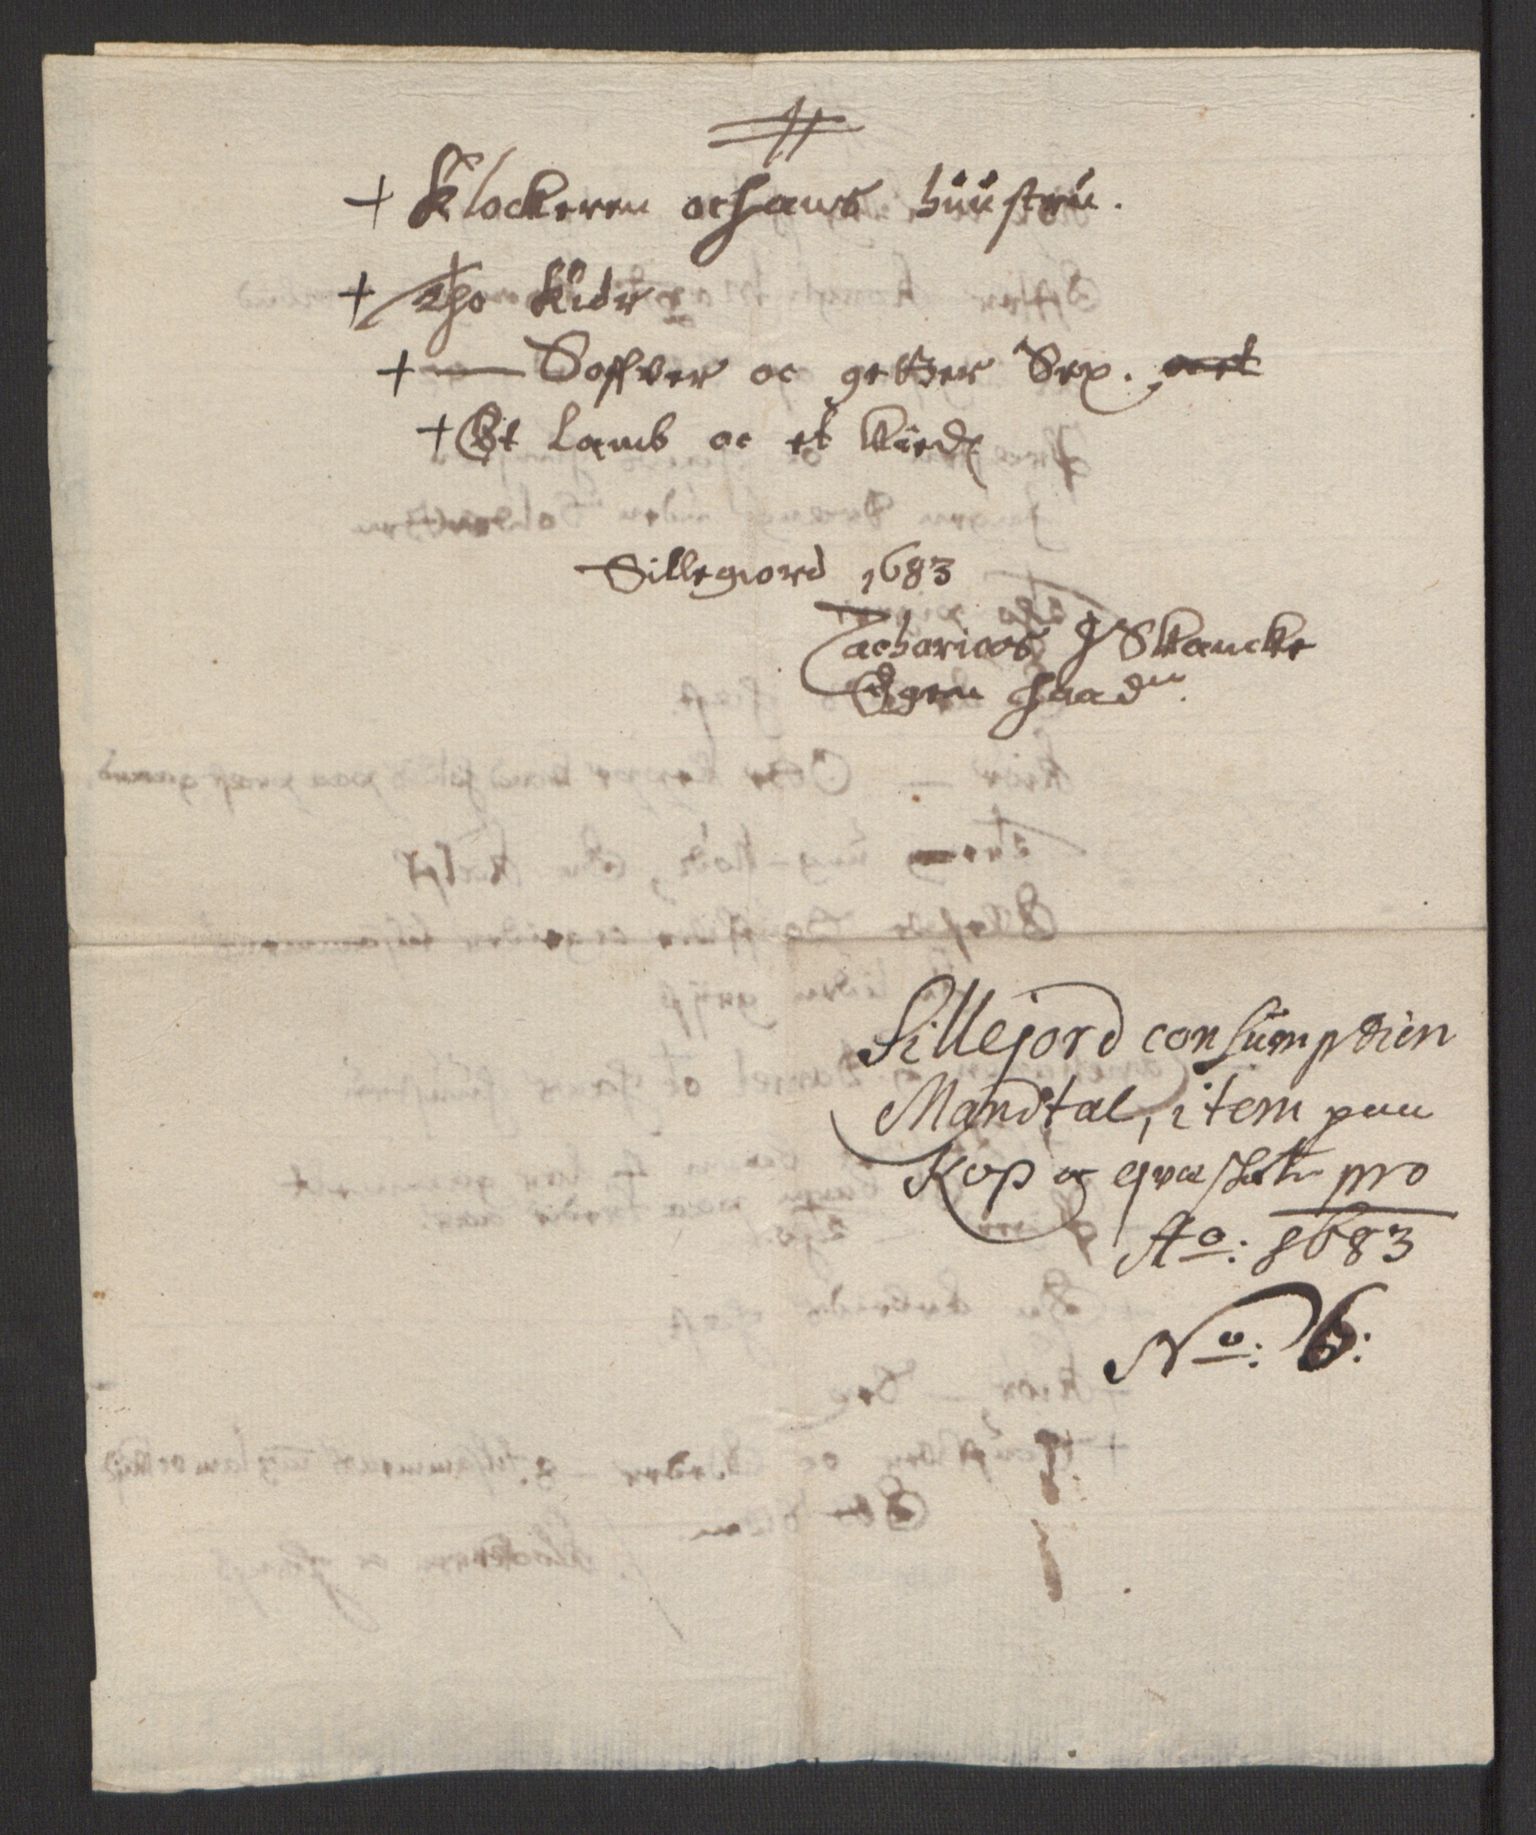 + Klockeren oc hans huustru.
+ Tho Kiör
+ — Soffver oc getter Sex.
+ Et Lamb oc et Kied
Sillegiord 1683
Zacharias J Skancke
Egen Haand
Sillejord consumption
Mandtal, item paa
Kop og qvægskatt pro
Ao: 1683
No: 6: